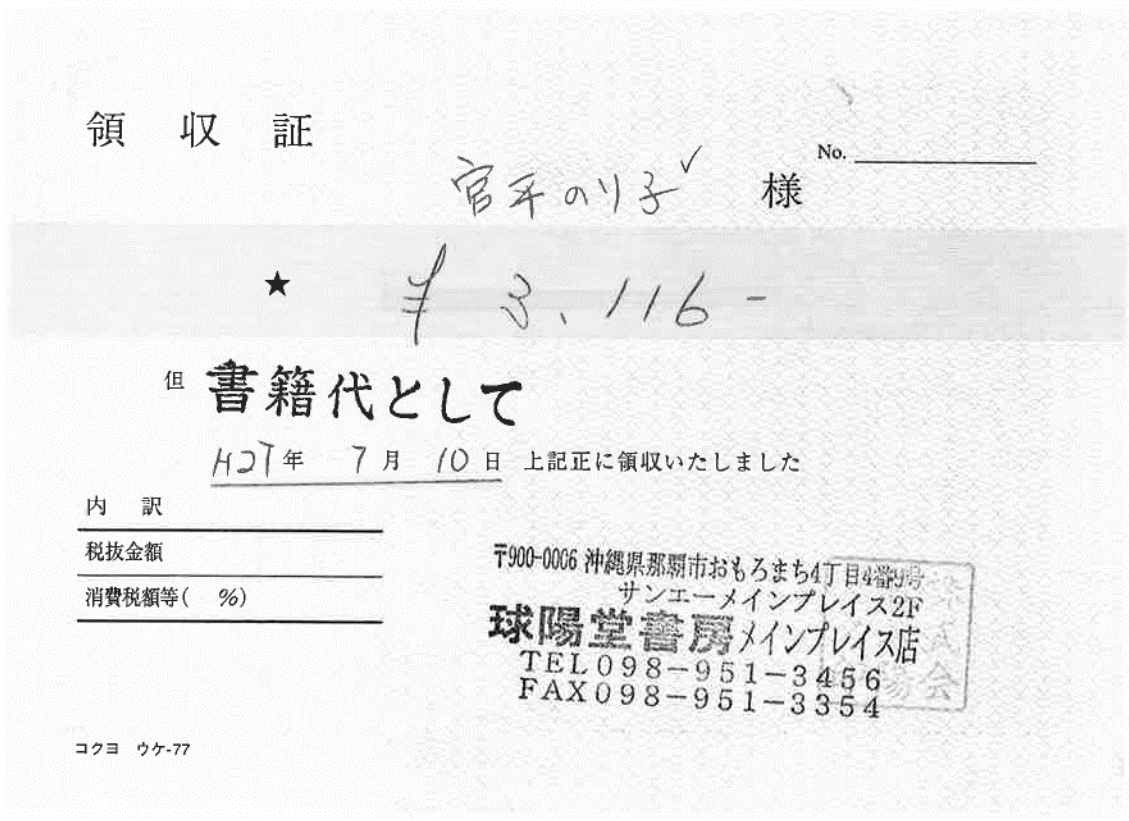 領収証
No.
宮平のり子 様
★ ¥3,116-
但 書籍代として
H27年 7月 10日 上記正に領収いたしました
内訳
税抜金額
消費税額等( %)
〒900-0006 沖縄県那覇市おもろまち4丁目4番9号
サンエーメインプレイス2F
球陽堂書房メインプレイス店
TEL098-951-3456
FAX098-951-3354
コクヨ ウケ-77